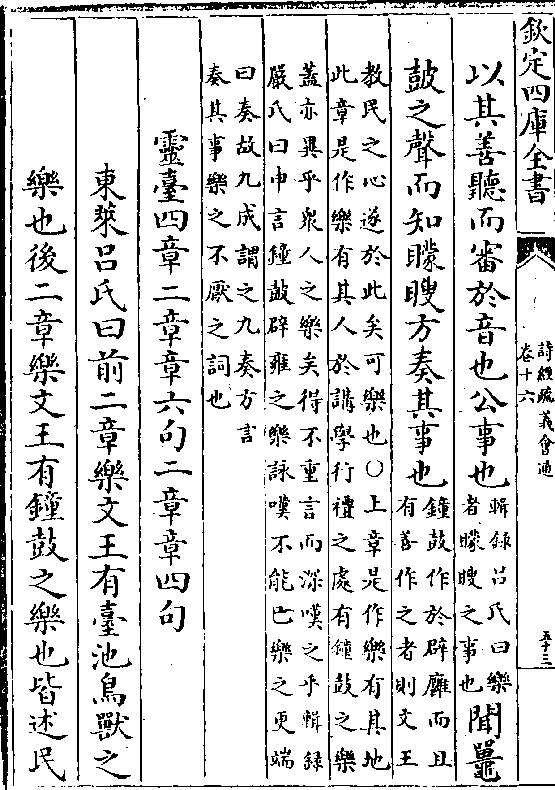 欽定四庫全書
詩經疏義會通
卷十六
五十三
以其善聽而審於音也公事也
輯録吕氏曰樂
者矇瞍之事也
聞鼉
鼓之聲而知矇瞍方奏其事也
鐘鼓作於辟廱而且
有善作之者則文王
教民之心遂於此矣可樂也○上章是作樂有其地
此章是作樂有其人於講學行禮之處有鐘鼓之樂
蓋亦異乎衆人之樂矣得不重言而深嘆之乎輯録
嚴氏曰申言鐘鼓辟雍之樂詠嘆不能已樂之更端
曰奏故九成謂之九奏方言
奏其事樂之不厭之詞也
靈臺四章二章章六句二章章四句
東萊吕氏曰前二章樂文王有臺池鳥獸之
樂也後二章樂文王有鐘鼓之樂也皆述民